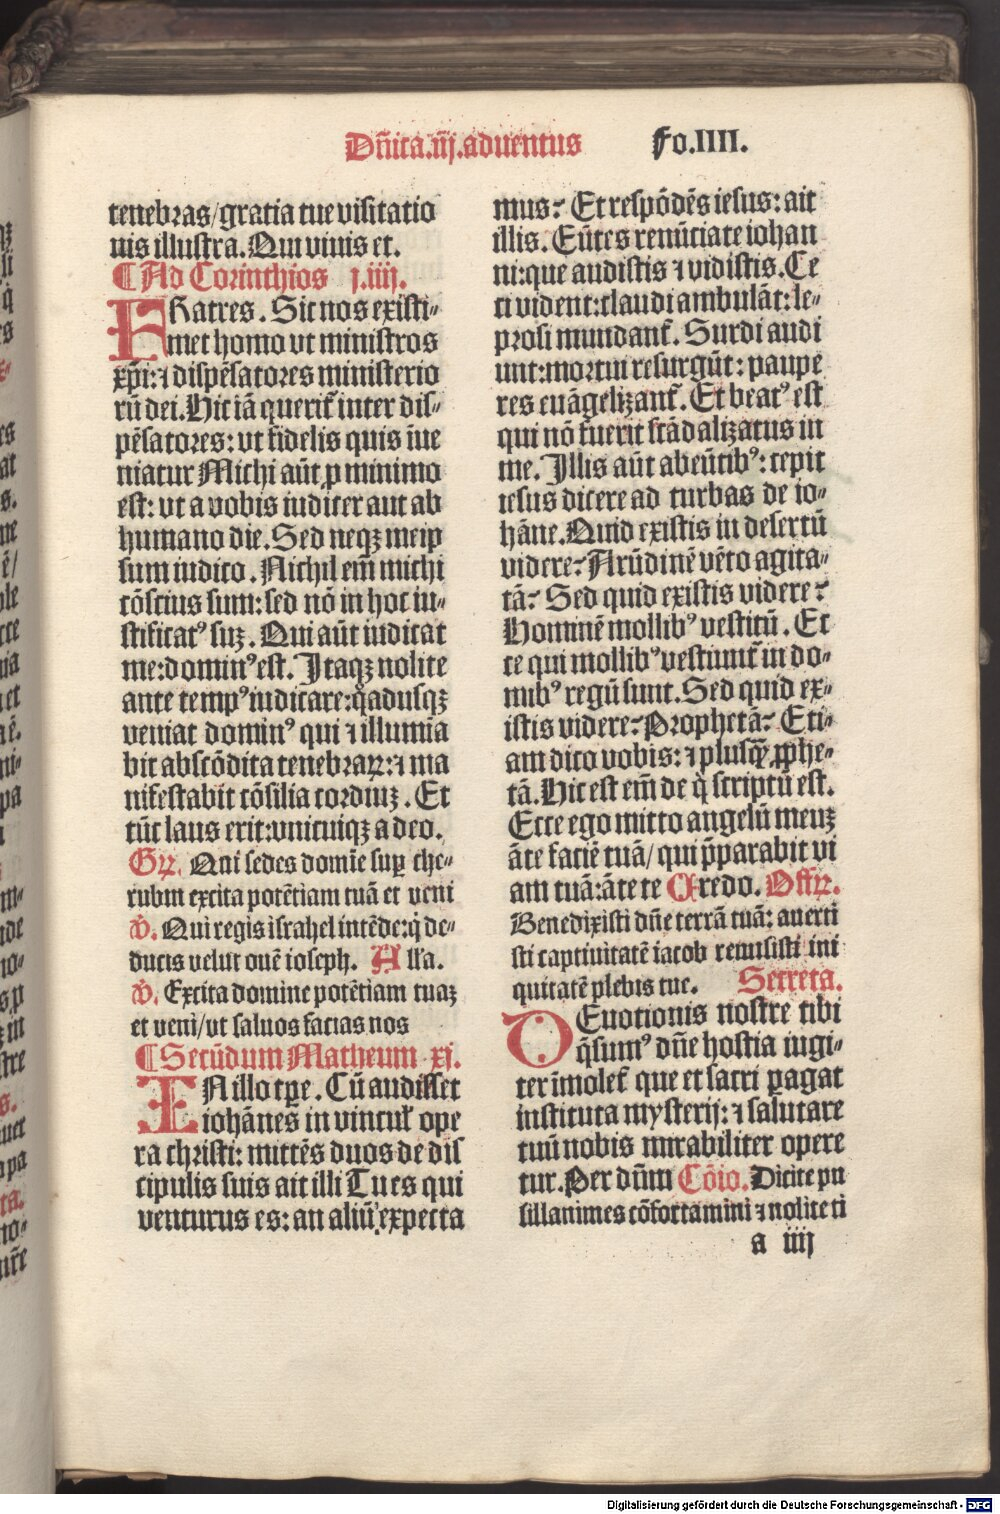 Dñica.iij.aduentus Fo.IIII.
tenebras/gratia tue visitatio
nis illustra. Qui viuis et.
¶ Ad Corinthios j.iiij.
FRatres. Sic nos existi-
met homo vt ministros
xp̄i: ⁊ dispēsatores ministerio
rū dei. Hic iā querit̃ inter dis-
pēsatores: vt fidelis quis īue
niatur Michi aūt ꝓ minimo
est: vt a vobis iudicer aut ab
humano die. Sed neqꝫ meip
sum iudico. Nichil em̄ michi
cōscius sum: sed nō in hoc iu-
stificatꝰ suꝫ. Qui aūt iudicat
me: dominꝰ est. Itaqꝫ nolite
ante tempꝰ iudicare: q̊adusqꝫ
veniat dominꝰ qui ⁊ illumīa
bit abscōdita tenebraꝝ: ⁊ ma
nifestabit cōsilia cordiuꝫ. Et
tūc laus erit: vnicuiqꝫ a deo.
Gꝝ. Qui sedes domīe suꝑ che-
rubin excita potētiam tuā et veni
v̄. Qui regis israhel intēde: q̇ de-
ducis velut ouē ioseph. Alła.
v̄. Excita domine potētiam tuaꝫ
et veni/vt saluos facias nos
¶ Secūdum Matheum xj.
IN illo tꝑe. Cū audisset
iohānes in vinculꝭ ope
ra christi: mittēs duos de dis
cipulis suis ait illi Tu es qui
venturus es: an aliū expecta
mus? Et respōdēs iesus: ait
illis. Eūtes renūciate iohan
ni: que audistis ⁊ vidistis. Ce
ci vident: claudi ambulāt: le-
prosi mundant̃. Surdi audi
unt: mortui resurgūt: paupe
res euāgelizant̃. Et beatꝰ est
qui nō fuerit scādalizatus in
me. Illis aūt abeūtibꝰ: cepit
iesus dicere ad turbas de io-
hāne. Quid existis in desertū
videre? Arūdinē vēto agita-
tā? Sed quid existis videre?
Hominē mollibꝰ vestitū. Ec
ce qui mollibꝰ vestiunt̃ in do-
mibꝰ regū sunt. Sed quid ex-
istis videre? Prophetā? Eti-
am dico vobis: ⁊ plusꝙ̄ ꝓphe-
tā. Hic est em̄ de q̊ scriptū est.
Ecce ego mitto angelū meuꝫ
āte faciē tuā/ qui p̄parabit vi
am tuā: āte te Credo. Offꝝ.
Benedixisti dn̄e terrā tuā: auerti
sti captiuitatē iacob remisisti ini
quitatē plebis tue. Secreta.
DEuotionis nostre tibi
q̄sumꝰ dn̄e hostia iugi-
ter īmolet̃ que et sacri ꝑagat
instituta mysterij: ⁊ salutare
tuū nobis mirabiliter opere
tur. Per dn̄m Cōio. Dicite pu
sillanimes cōfortamini ⁊ nolite ti
a iiij
Digitalisierung gefördert durch die Deutsche Forschungsgemeinschaft - DFG